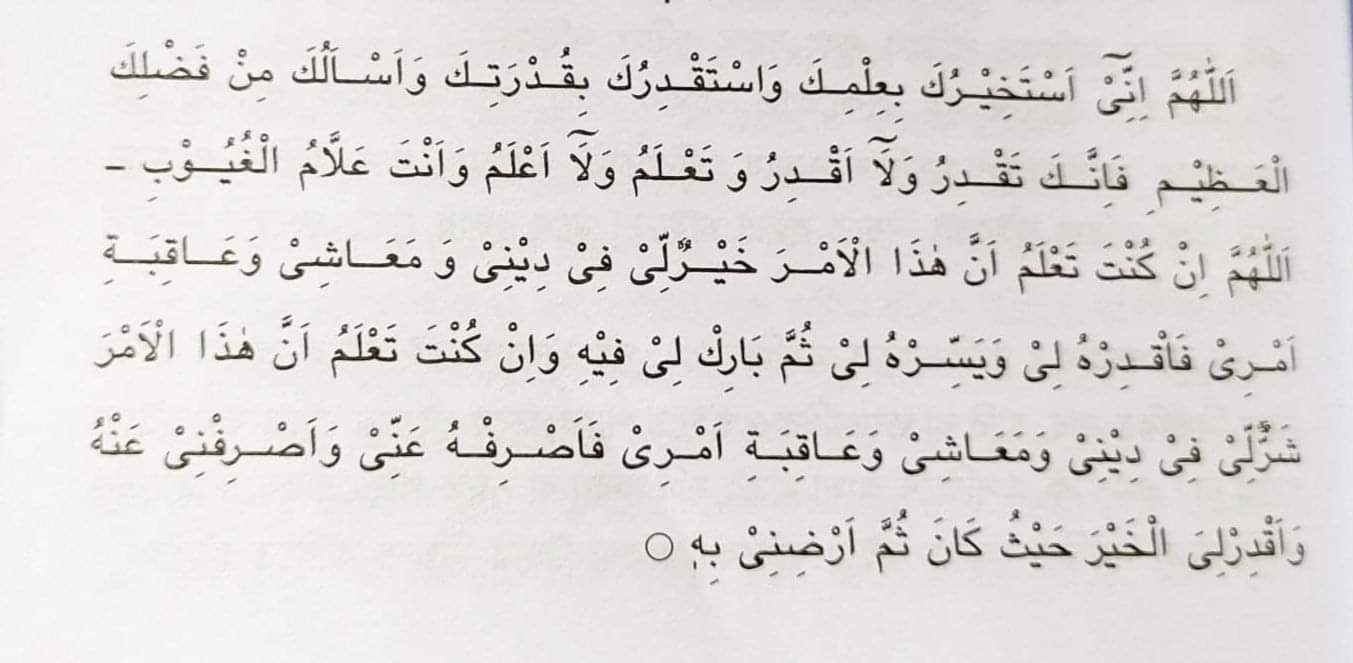 اَللّٰهُمَّ اِنِّىْٓ اَسْتَخِيْرُكَ بِعِلْمِكَ وَاسْتَقْدِرُكَ بِقُدْرَتِكَ وَاَسْاَلُكَ مِنْ فَضْلِكَ
الْعَظِيْمِ فَاِنَّكَ تَقْدِرُ وَلَآ اَقْدِرُ وَ تَعْلَمُ وَلَآ اَعْلَمُ وَاَنْتَ عَلَّامُ الْغُيُوْبِ -
اَللّٰهُمَّ اِنْ كُنْتَ تَعْلَمُ اَنَّ هٰذَا الْاَمْرَ خَيْرٌلِّىْ فِىْ دِيْنِىْ وَ مَعَاشِىْ وَعَاقِبَةِ
اَمْرِىْ فَاقْدِرْهُ لِىْ وَيَسِّرْهُ لِىْ ثُمَّ بَارِكْ لِىْ فِيْهِ وَاِنْ كُنْتَ تَعْلَمُ اَنَّ هٰذَا الْاَمْرَ
شَرٌّلِّىْ فِىْ دِيْنِىْ وَمَعَاشِىْ وَعَاقِبَةِ اَمْرِىْ فَاَصْرِفْهُ عَنِّىْ وَاَصْرِفْنِىْ عَنْهُ
وَاَقْدِرْلِىَ الْخَيْرَ حَيْثُ كَانَ ثُمَّ اَرْضِنِىْ بِهٖ ○